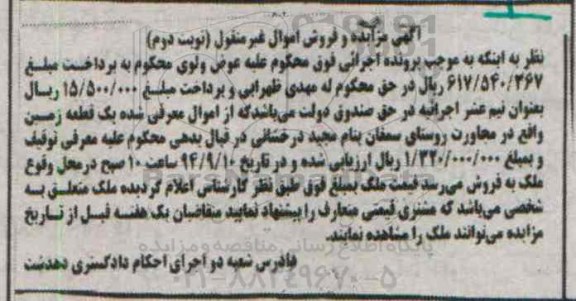 آگهی مزایده و فروش اموال غیر منقول (نوبت دوم)
نظر به اینکه به موجب پرونده اجرائی فوق محکوم علیه عوض ولوی محکوم به پرداخت مبلغ
۶۱۷/۵۴۰/۳۶۷ ریال در حق محکوم له مهدی ظهرابی و پرداخت مبلغ ۱۵/۵۰۰/۰۰۰ ریال
بعنوان نیم عشر اجرائیه در حق صندوق دولت میباشدکه از اموال معرفی شده یک قطعه زمین
واقع در مجاورت روستای سمغان بنام مجید درخشانی در قبال بدهی محکوم علیه معرفی توقیف
و بمبلغ ۱/۳۲۰/۰۰۰/۰۰۰ ریال ارزیابی شده و در تاریخ ۹۴/۹/۱۰ ساعت ۱۰ صبح درمحل وقوع
ملک به فروش می‌رسد قیمت ملک بمبلغ فوق طبق نظر کارشناس اعلام گردیده ملک متعلق به
شخصی می‌باشد که مشتری قیمتی متعارف را پیشنهاد نمایید متقاضیان یک هفته قبل از تاریخ
مزایده می‌توانند ملک را مشاهده نمایند.
پایگاه اطلاع رسانی مناقصه و مزایده
دادرس شعبه دو اجرای احکام دادگستری دهدشت
۰۲۱-۸۸۳۴۹۶۷۰-۵